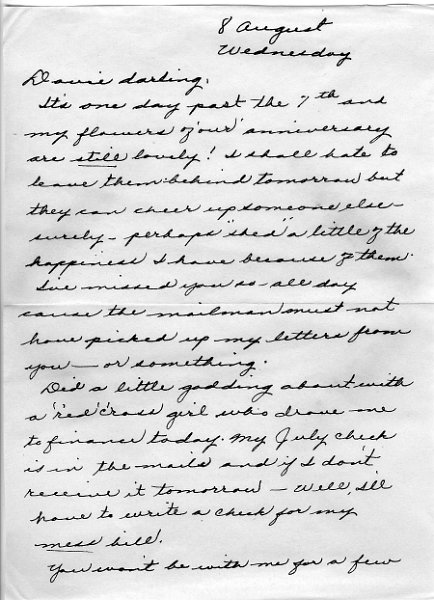 8 August
Wednesday
Davie darling,
It's one day past the 7th and
my flowers of "our" anniversary
are still lovely! I shall hate to
leave them behind tomorrow but
they can cheer up someone else
surely - perhaps "shed" a little of the
happiness I have because of them.
I've missed you so - all day
cause the mailman must not
have picked up my letters from
you — or something.
Did a little gadding about with
a "red" cross girl who drove me
to finance today. My July check
is in the mails and if I don't
receive it tomorrow — Well, I'll
have to write a check for my
mess bill.
You won't be with me for a few